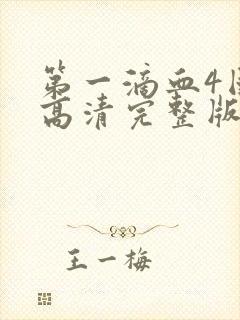 第一滴血4
高清完整版
王一梅